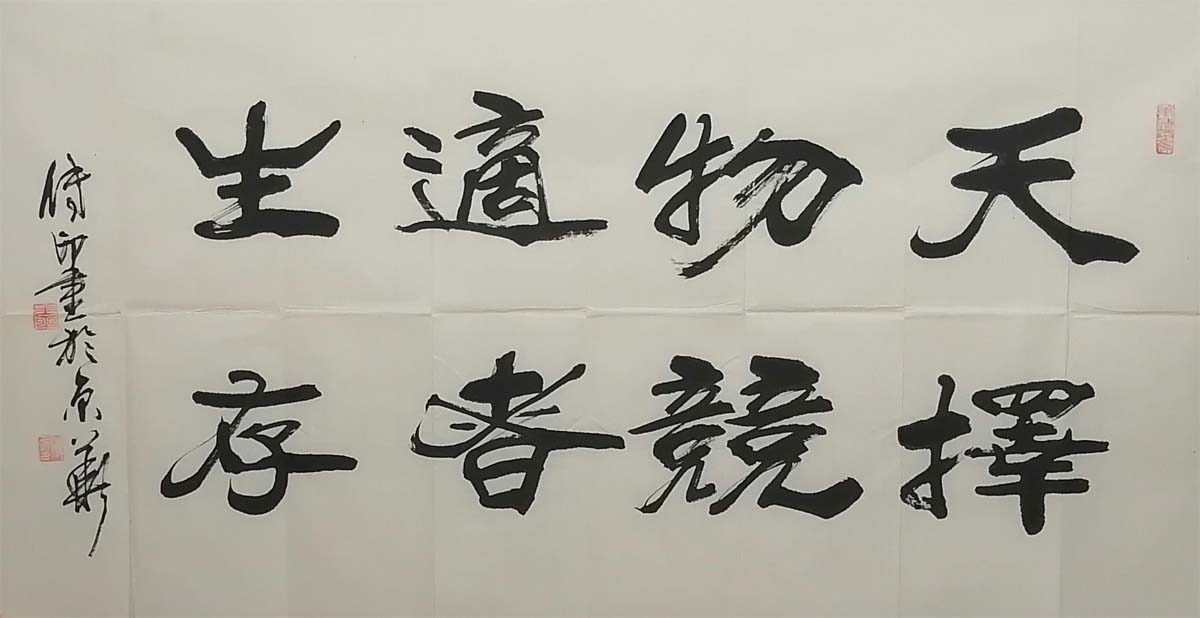 天擇
物競
適者
生存
印畫於京華